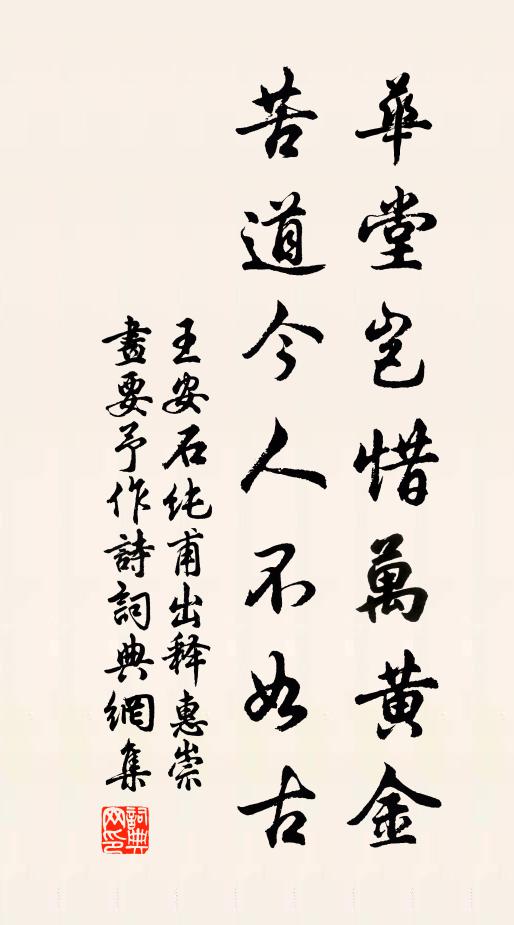 華堂岂惜萬黄金
苦道今人不如古
王安石纯甫出释惠崇
畫要予作詩詞典網集
詞典网印